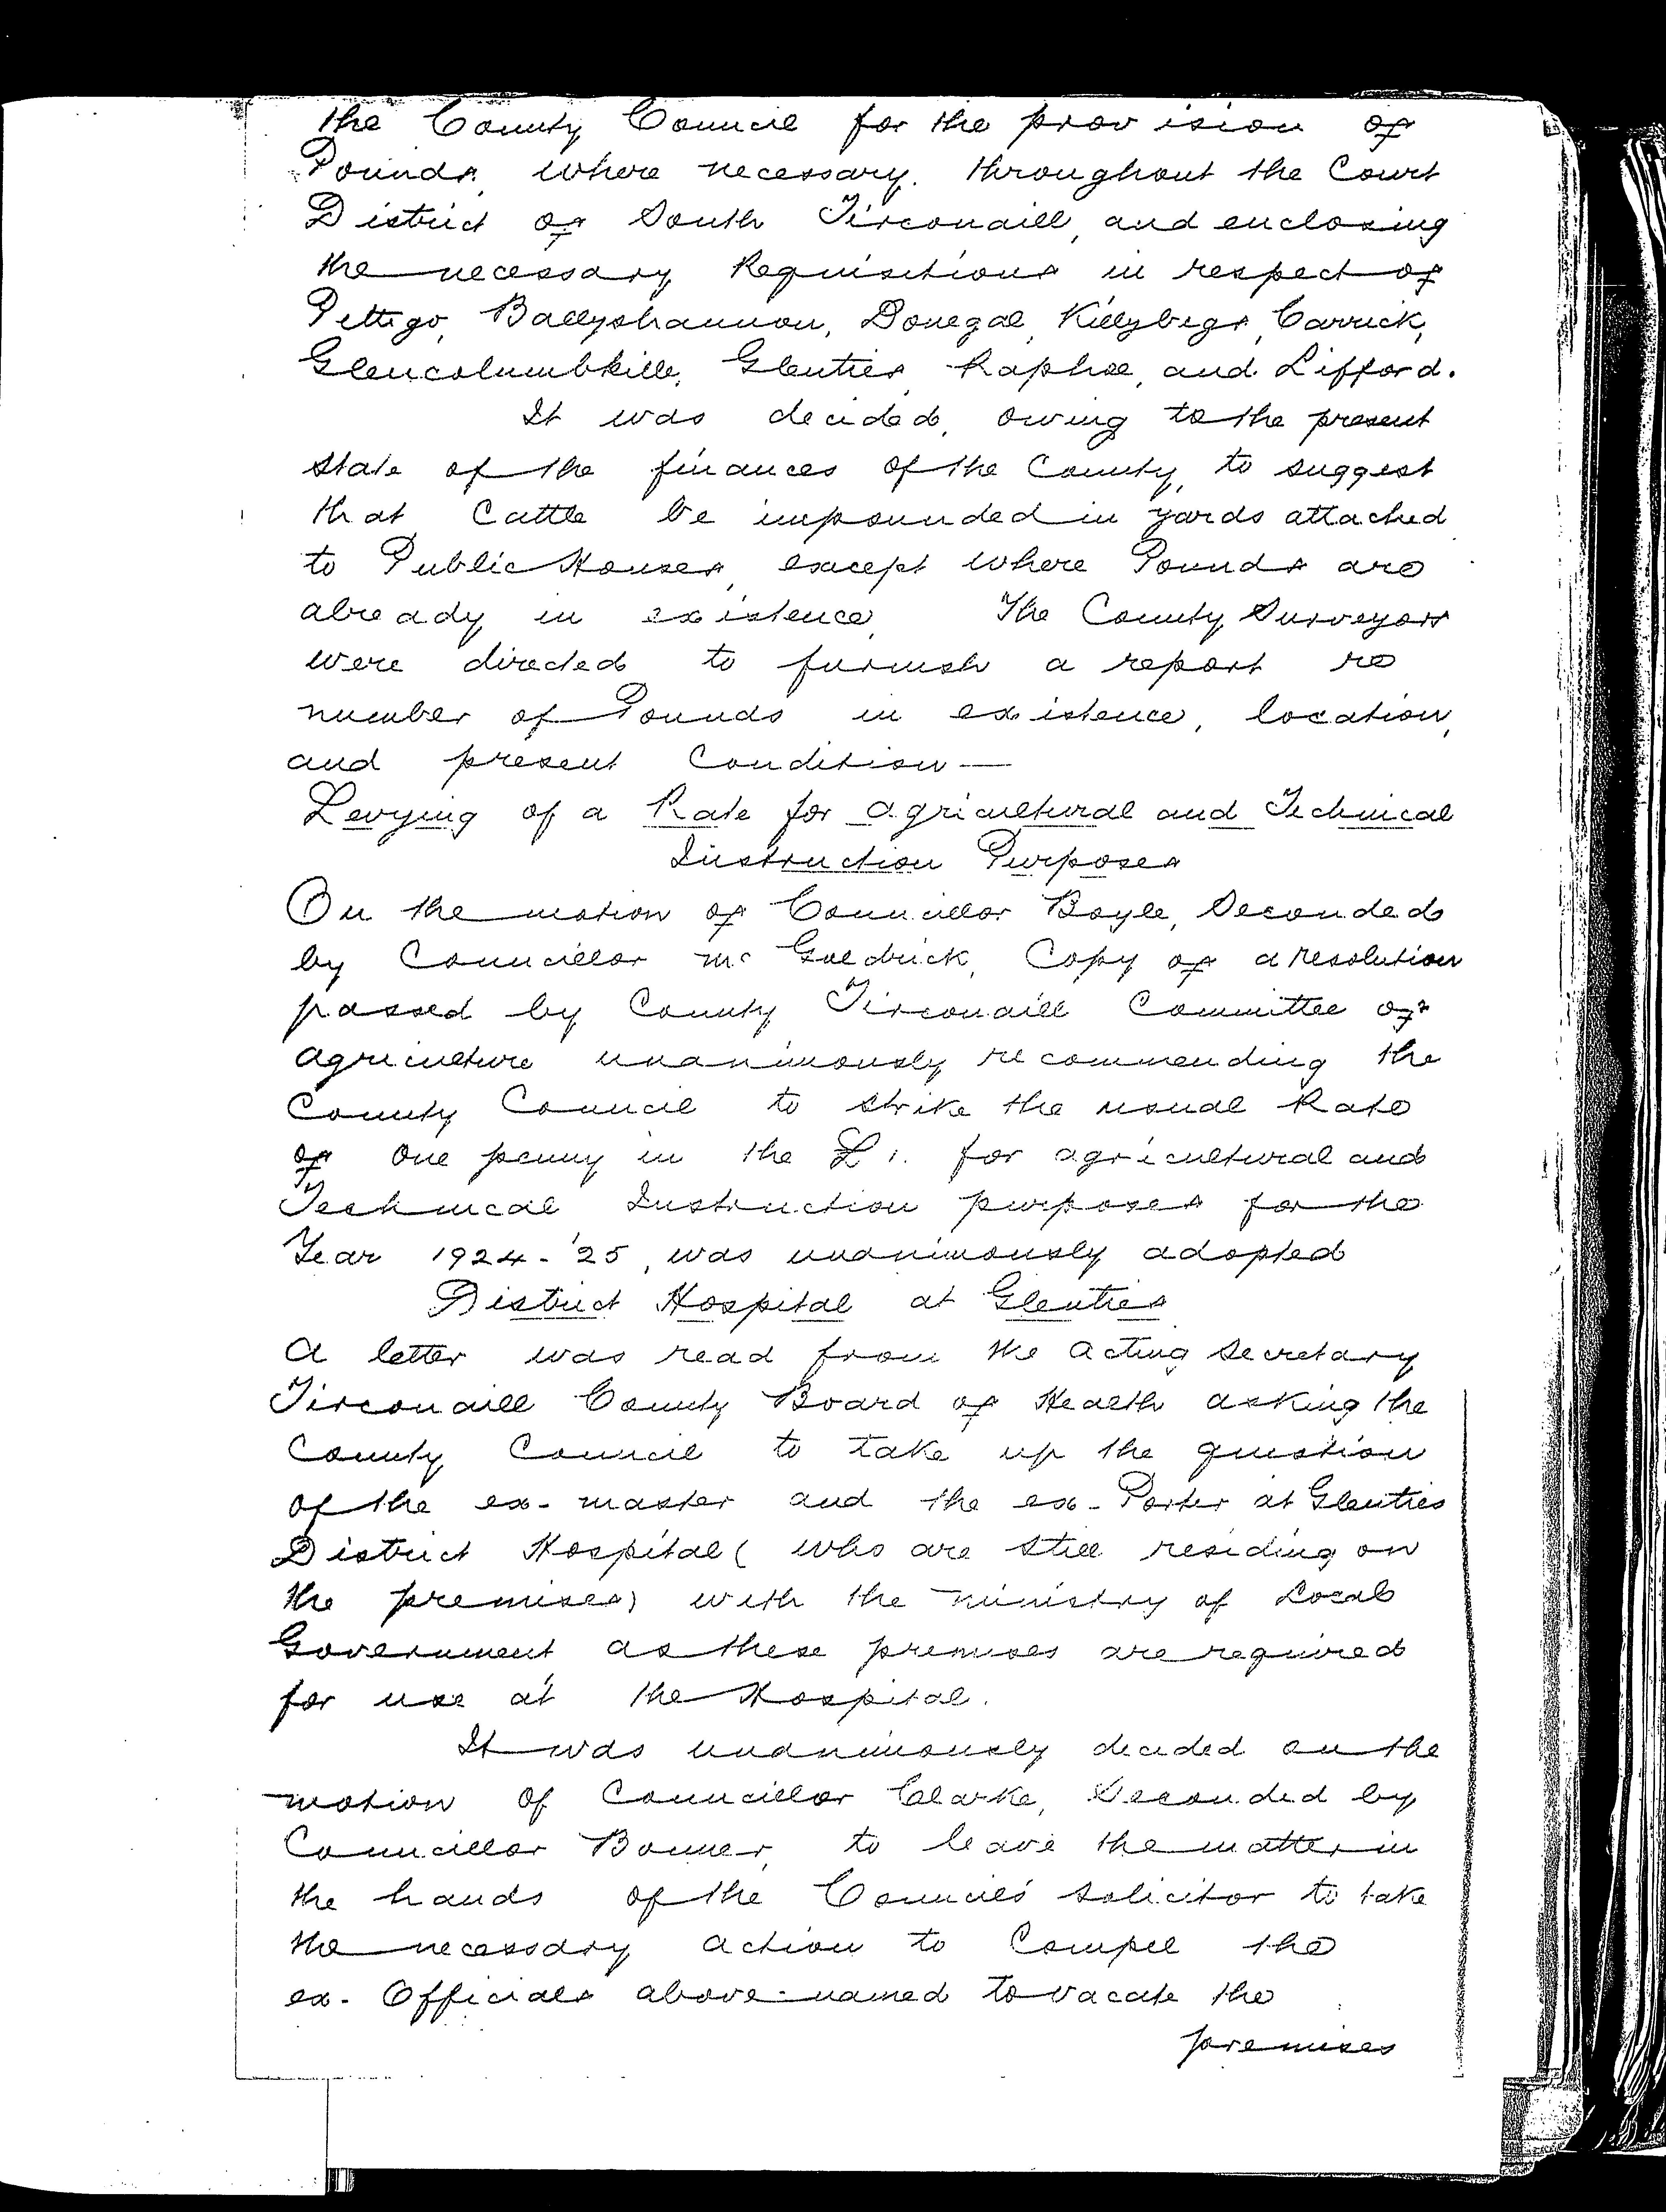 the County Council for the provision of
Pounds, where necessary, throughout the Court
District of South Tirconaill, and enclosing
the necessary Requisitions in respect of
Pettigo, Ballyshannon, Donegal, Killybegs, Carrick,
Glencolumbkille, Glenties, Raphoe, and Lifford.
It was decided, owing to the present
state of the finances of the County, to suggest
that Cattle be impounded in yards attached
to Public Houses, except where Pounds are
already in existence. The County Surveyors
were directed to furnish a report re
number of Pounds in existence, location,
and present Condition —
Levying of a Rate for agricultural and Technical
Instruction Purposes
On the motion of Councillor Boyle, Seconded
by Councillor Mc Goldrick, Copy of a resolution
passed by County Tirconaill Committee of
agriculture unanimously recommending the
County Council to strike the usual Rate
of One penny in the £1. for agricultural and
Technical Instruction purposes for the
Year 1924-'25, was unanimously adopted
District Hospital at Glenties
A letter was read from the acting Secretary
Tirconaill County Board of Health asking the
County Council to take up the question
of the ex-master and the ex-Porter at Glenties
District Hospital (who are still residing on
the premises) with the ministry of Local
Government as these premises are required
for use at the Hospital.
It was unanimously decided on the
motion of Councillor Clarke, Seconded by
Councillor Bonner, to leave the matter in
the hands of the Council's solicitor to take
the necessary action to Compel the
ex-Officials above-named to vacate the
premises